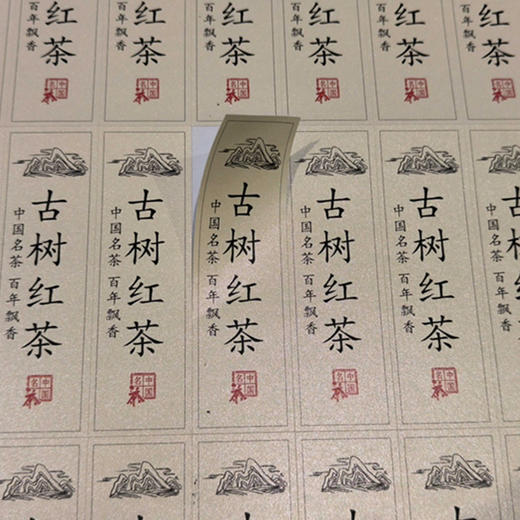 红茶
百年飘香
中国名茶
红茶
百年飘香
中国名茶
红茶
百年飘香
中国名茶
红茶
百年飘香
中国名茶
红茶
百年飘香
中国名茶
红茶
百年飘香
中国名茶
古树红茶
中国名茶 百年飘香
中国名茶
古树红茶
中国名茶 百年飘香
中国名茶
古树红茶
中国名茶 百年飘香
中国名茶
古树红茶
中国名茶 百年飘香
中国名茶
古树红茶
中国名茶 百年飘香
中国名茶
古树红茶
中国名茶 百年飘香